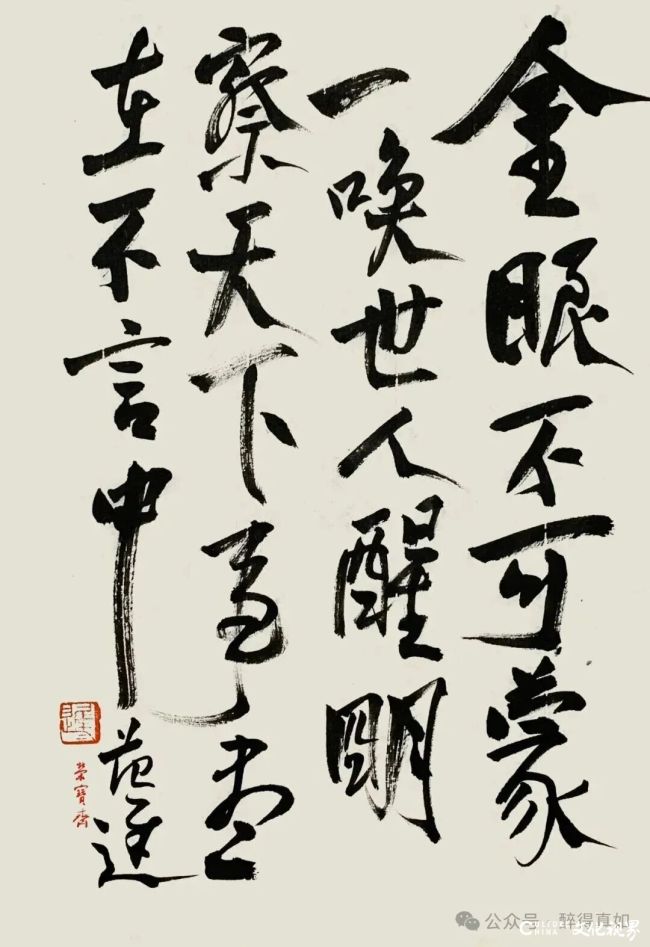 金眼不可蒙
一唤世人醒明
察天下事尽
在不言中
范
榮寶齋
公众号 · 醉得真如
CHINA 文化视界